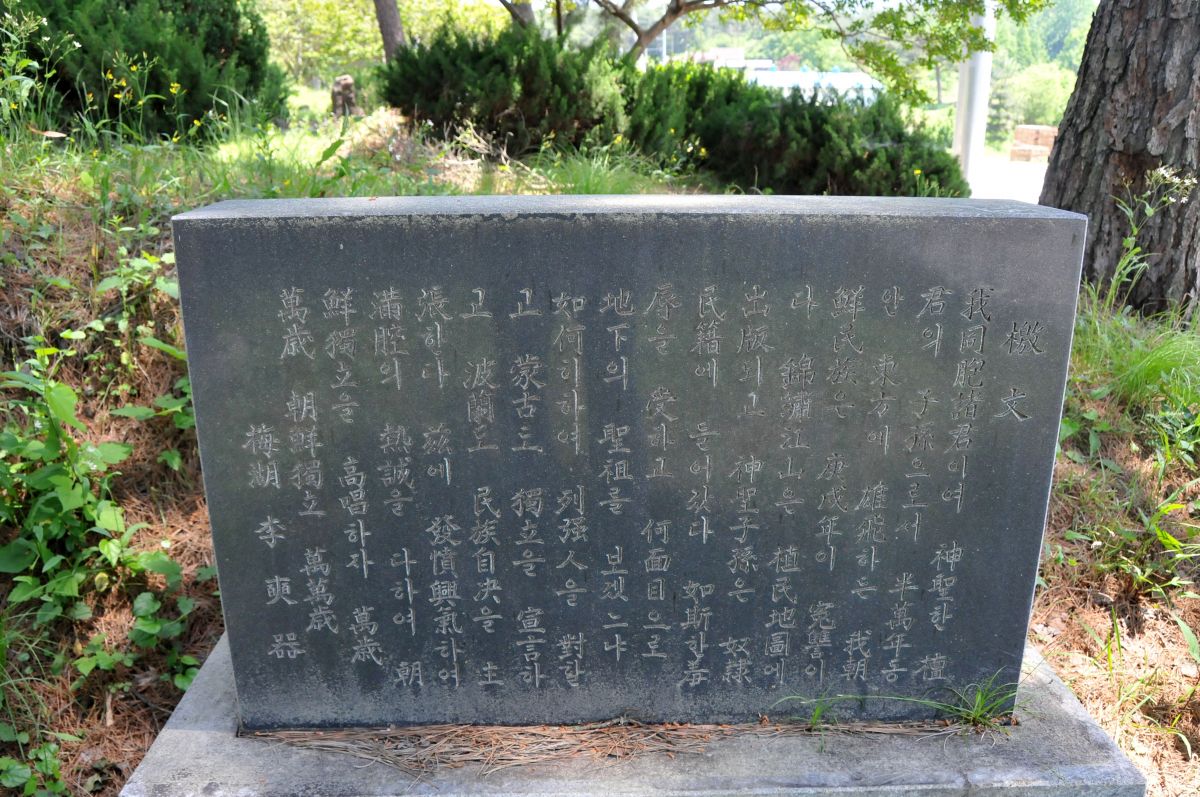 檄文
我同胞諸君이여 神聖한 檀
君의 子孫으로서 半萬年동
안 東方에 雄飛하든 我朝
鮮民族은 庚戌年이 寃讐이
다 錦繡江山은 植民地圖에
出版되고 神聖子孫은 奴隷
民籍에 들어갔다 如斯한羞
辱을 受하고 何面目으로
地下의 聖祖를 보겠느냐
如何히하여 列强人을 對할
고 蒙古도 獨立을 宣言하
고 波蘭도 民族自决을 主
張하다 玆에 發憤興氣하여
滿腔의 熱誠을 다하여 朝
鮮獨立을 高唱하자 萬歲
萬歲 朝鮮獨立 萬萬歲
梅湖 李 奭 器